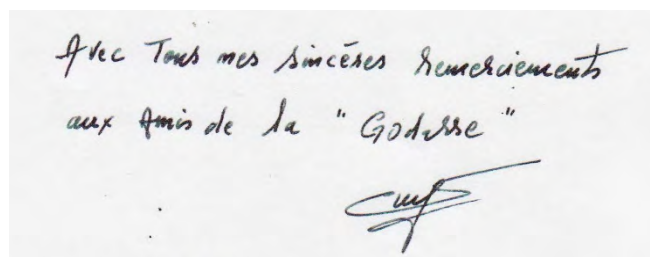 Avec Tous mes sincères remerciements
aux Amis de la "Godasse"